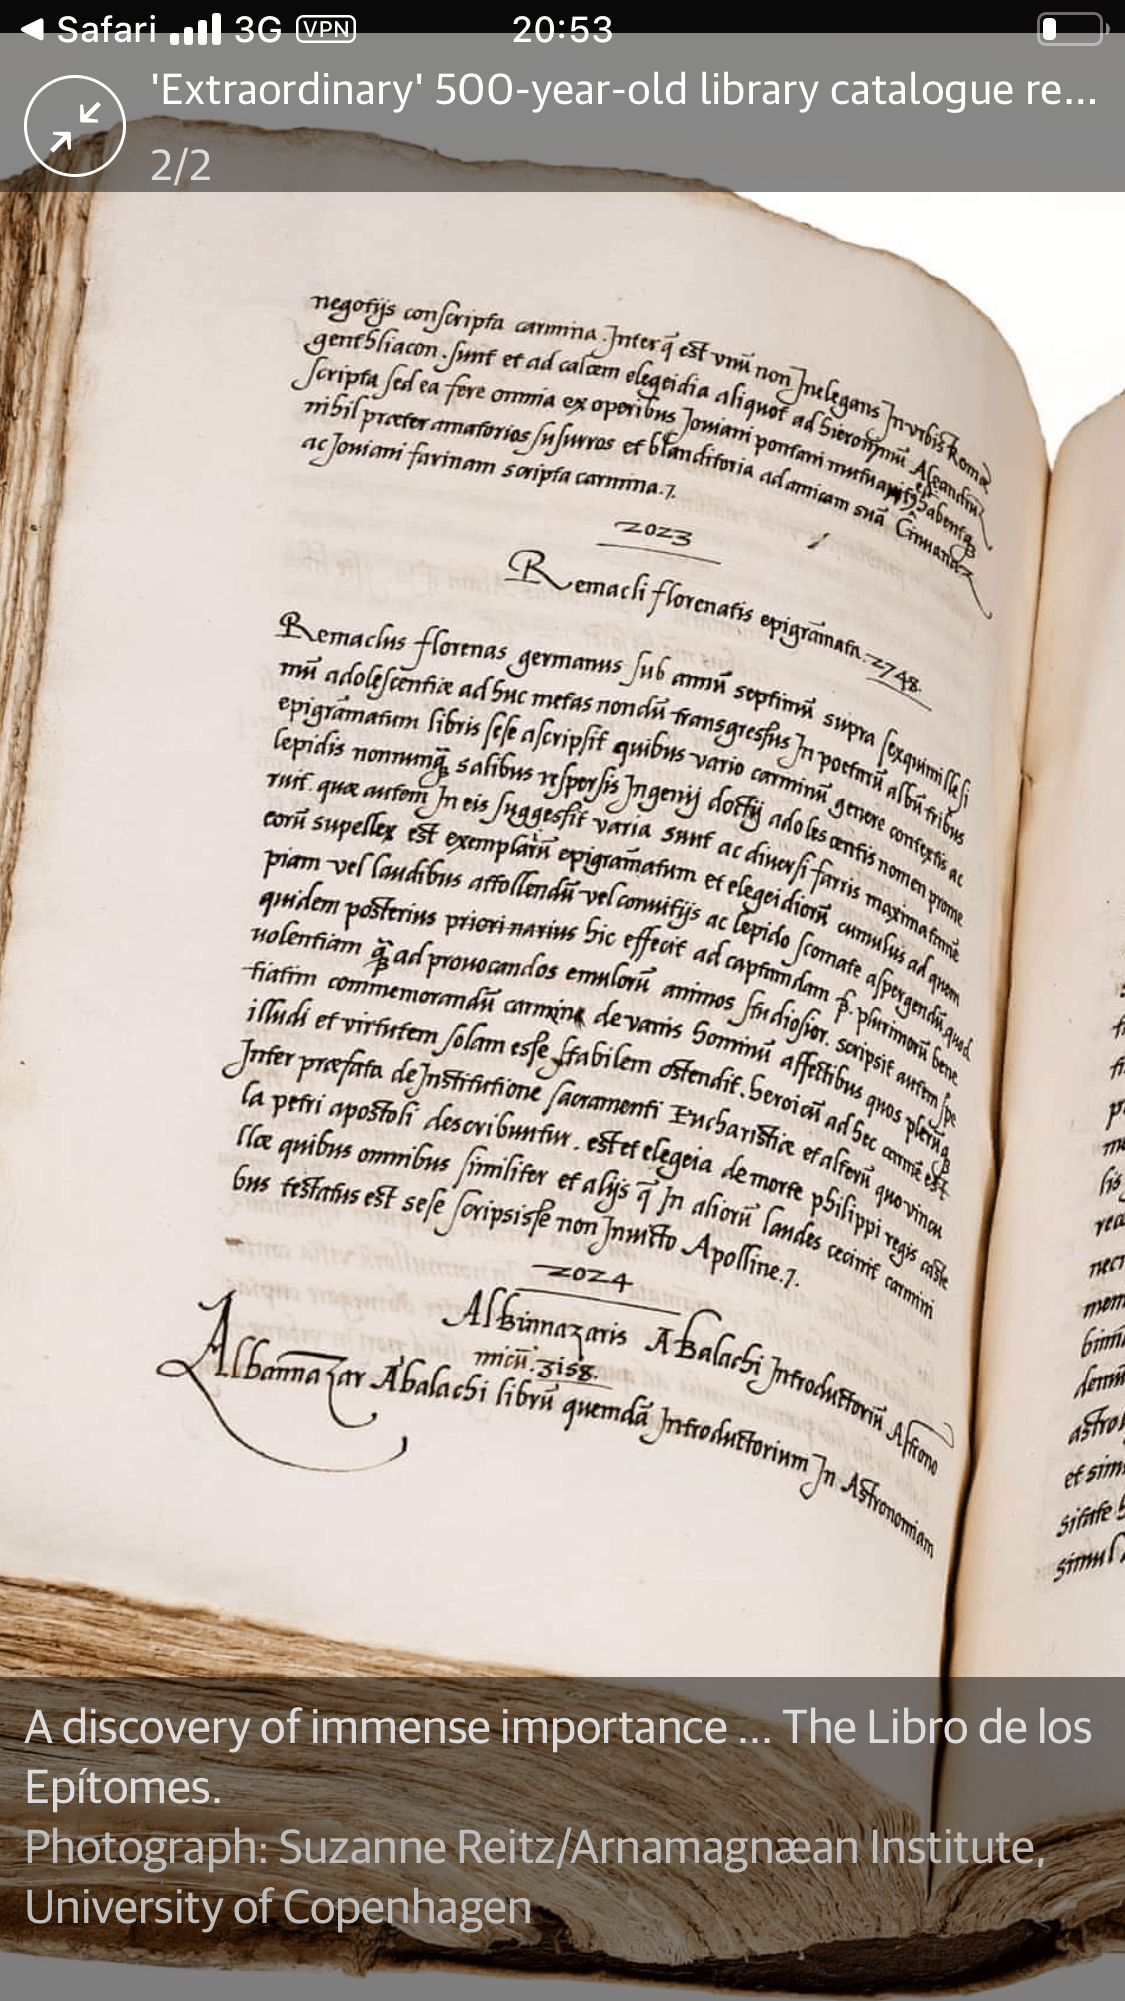 Safari 3G VPN 20:53
'Extraordinary' 500-year-old library catalogue re...
2/2
negotijs conscripta carmina. Inter q̄ est vnū non Inelegans In vrbis Romæ
genethliacon. sunt et ad calcem elegeidia aliquot ad hieronymū Aleandrū
scripta sed ea fere omnia ex operibus Joviani pontani mutuat
nihil præter amatorios susurros et blanditoria ad amicam suā
ac Joviani farinam scripta carmina.7.
2023
Remacli florenatis epigrāmata. 2748.
Remaclus florenas germanus sub annū septimū supra sexquimillesi
mū adolescentiæ ad huc metas nondū transgressus In poetarū albū tribus
epigrāmatum libris sese ascripsit quibus vario carminū genere contextis ac
lepidis nonnunq̄ salibus respersis Ingenij doctij adolescentis nomen prome
ruit. quæ autem In eis suggessit varia sunt ac diversi farris maxima tamē
eorū supellex est exemplariū epigrāmatum et elegeidiorū cumulus ad quem
piam vel laudibus attollendū vel convitijs ac lepido scomate aspergendū. quod
quidem posterius priori narius hic effecit ad captandam p̄. plurimorū bene
uolentiam q̄ ad provocandos emulorū animos studiosior. scripsit autem spe
tiatim commemorandū carmina de varijs hominū affectibus quos plerūq
illudi et virtutem solam esse stabilem ostendit. heroicū ad hec carmē est
Inter præfata de Institutione sacramenti Eucharistiæ et alterū quo vincu
la petri apostoli describuntur. est et elegeia de morte philippi regis caste
llæ quibus omnibus similiter et alijs q̄ In aliorū laudes cecinit carmini
bus testatus est sese scripsisse non Invicto Apolline.7.
2024
Albinnazaris Abalachi Introductoriū Astrono
micū. 3158.
Albannazar Abalachi librū quemdā Introductorium In Astronomiam
A discovery of immense importance ... The Libro de los
Epítomes.
Photograph: Suzanne Reitz/Arnamagnæan Institute,
University of Copenhagen